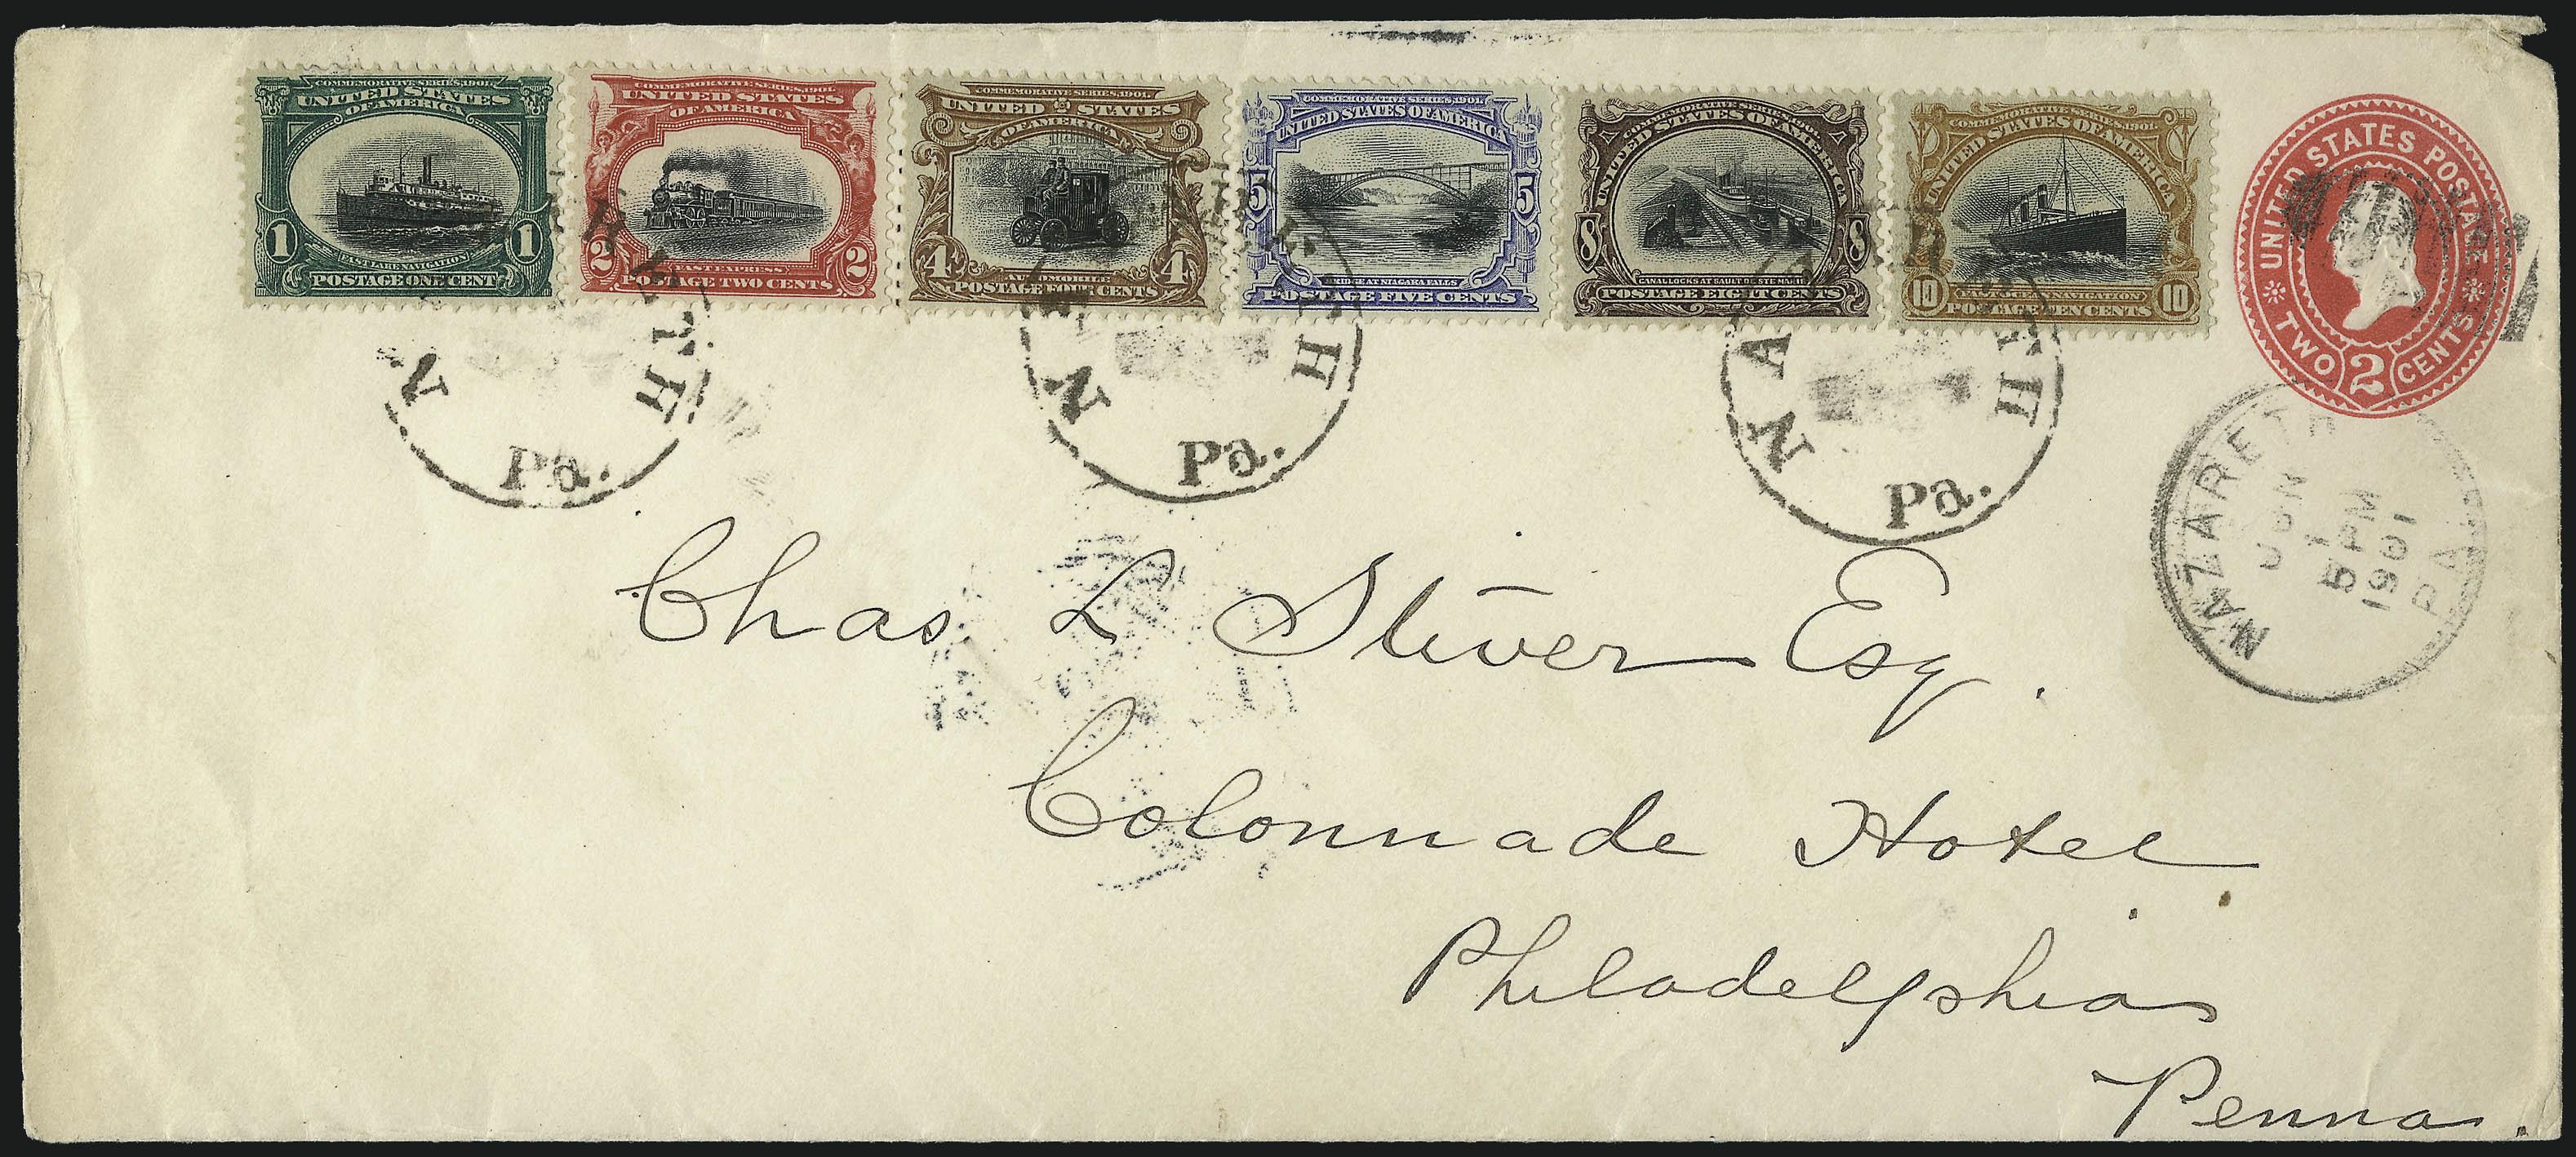 COMMEMORATIVE SERIES, 1901.
UNITED STATES
OF AMERICA
1 1
FAST LAKE NAVIGATION
POSTAGE ONE CENT
COMMEMORATIVE SERIES, 1901.
UNITED STATES
OF AMERICA
2 2
FAST EXPRESS
POSTAGE TWO CENTS
COMMEMORATIVE SERIES, 1901.
UNITED STATES
OF AMERICA
4 4
AUTOMOBILE
POSTAGE FOUR CENTS
COMMEMORATIVE SERIES, 1901.
UNITED STATES OF AMERICA
5 5
BRIDGE AT NIAGARA FALLS
POSTAGE FIVE CENTS
COMMEMORATIVE SERIES, 1901
UNITED STATES OF AMERICA
8 8
CANAL LOCKS AT SAULT DE STE. MARIE
POSTAGE EIGHT CENTS
COMMEMORATIVE SERIES, 1901.
UNITED STATES OF AMERICA
10 10
NAVIGATION
POSTAGE TEN CENTS
UNITED STATES POSTAGE
TWO 2 CENTS
Pa.
NAZARETH
Pa.
NAZARETH
Pa.
NAZARETH PA.
JUN
5 PM
1901
Chas L Stiver Esq.
Colonnade Hotel
Philadelphia
Penna.